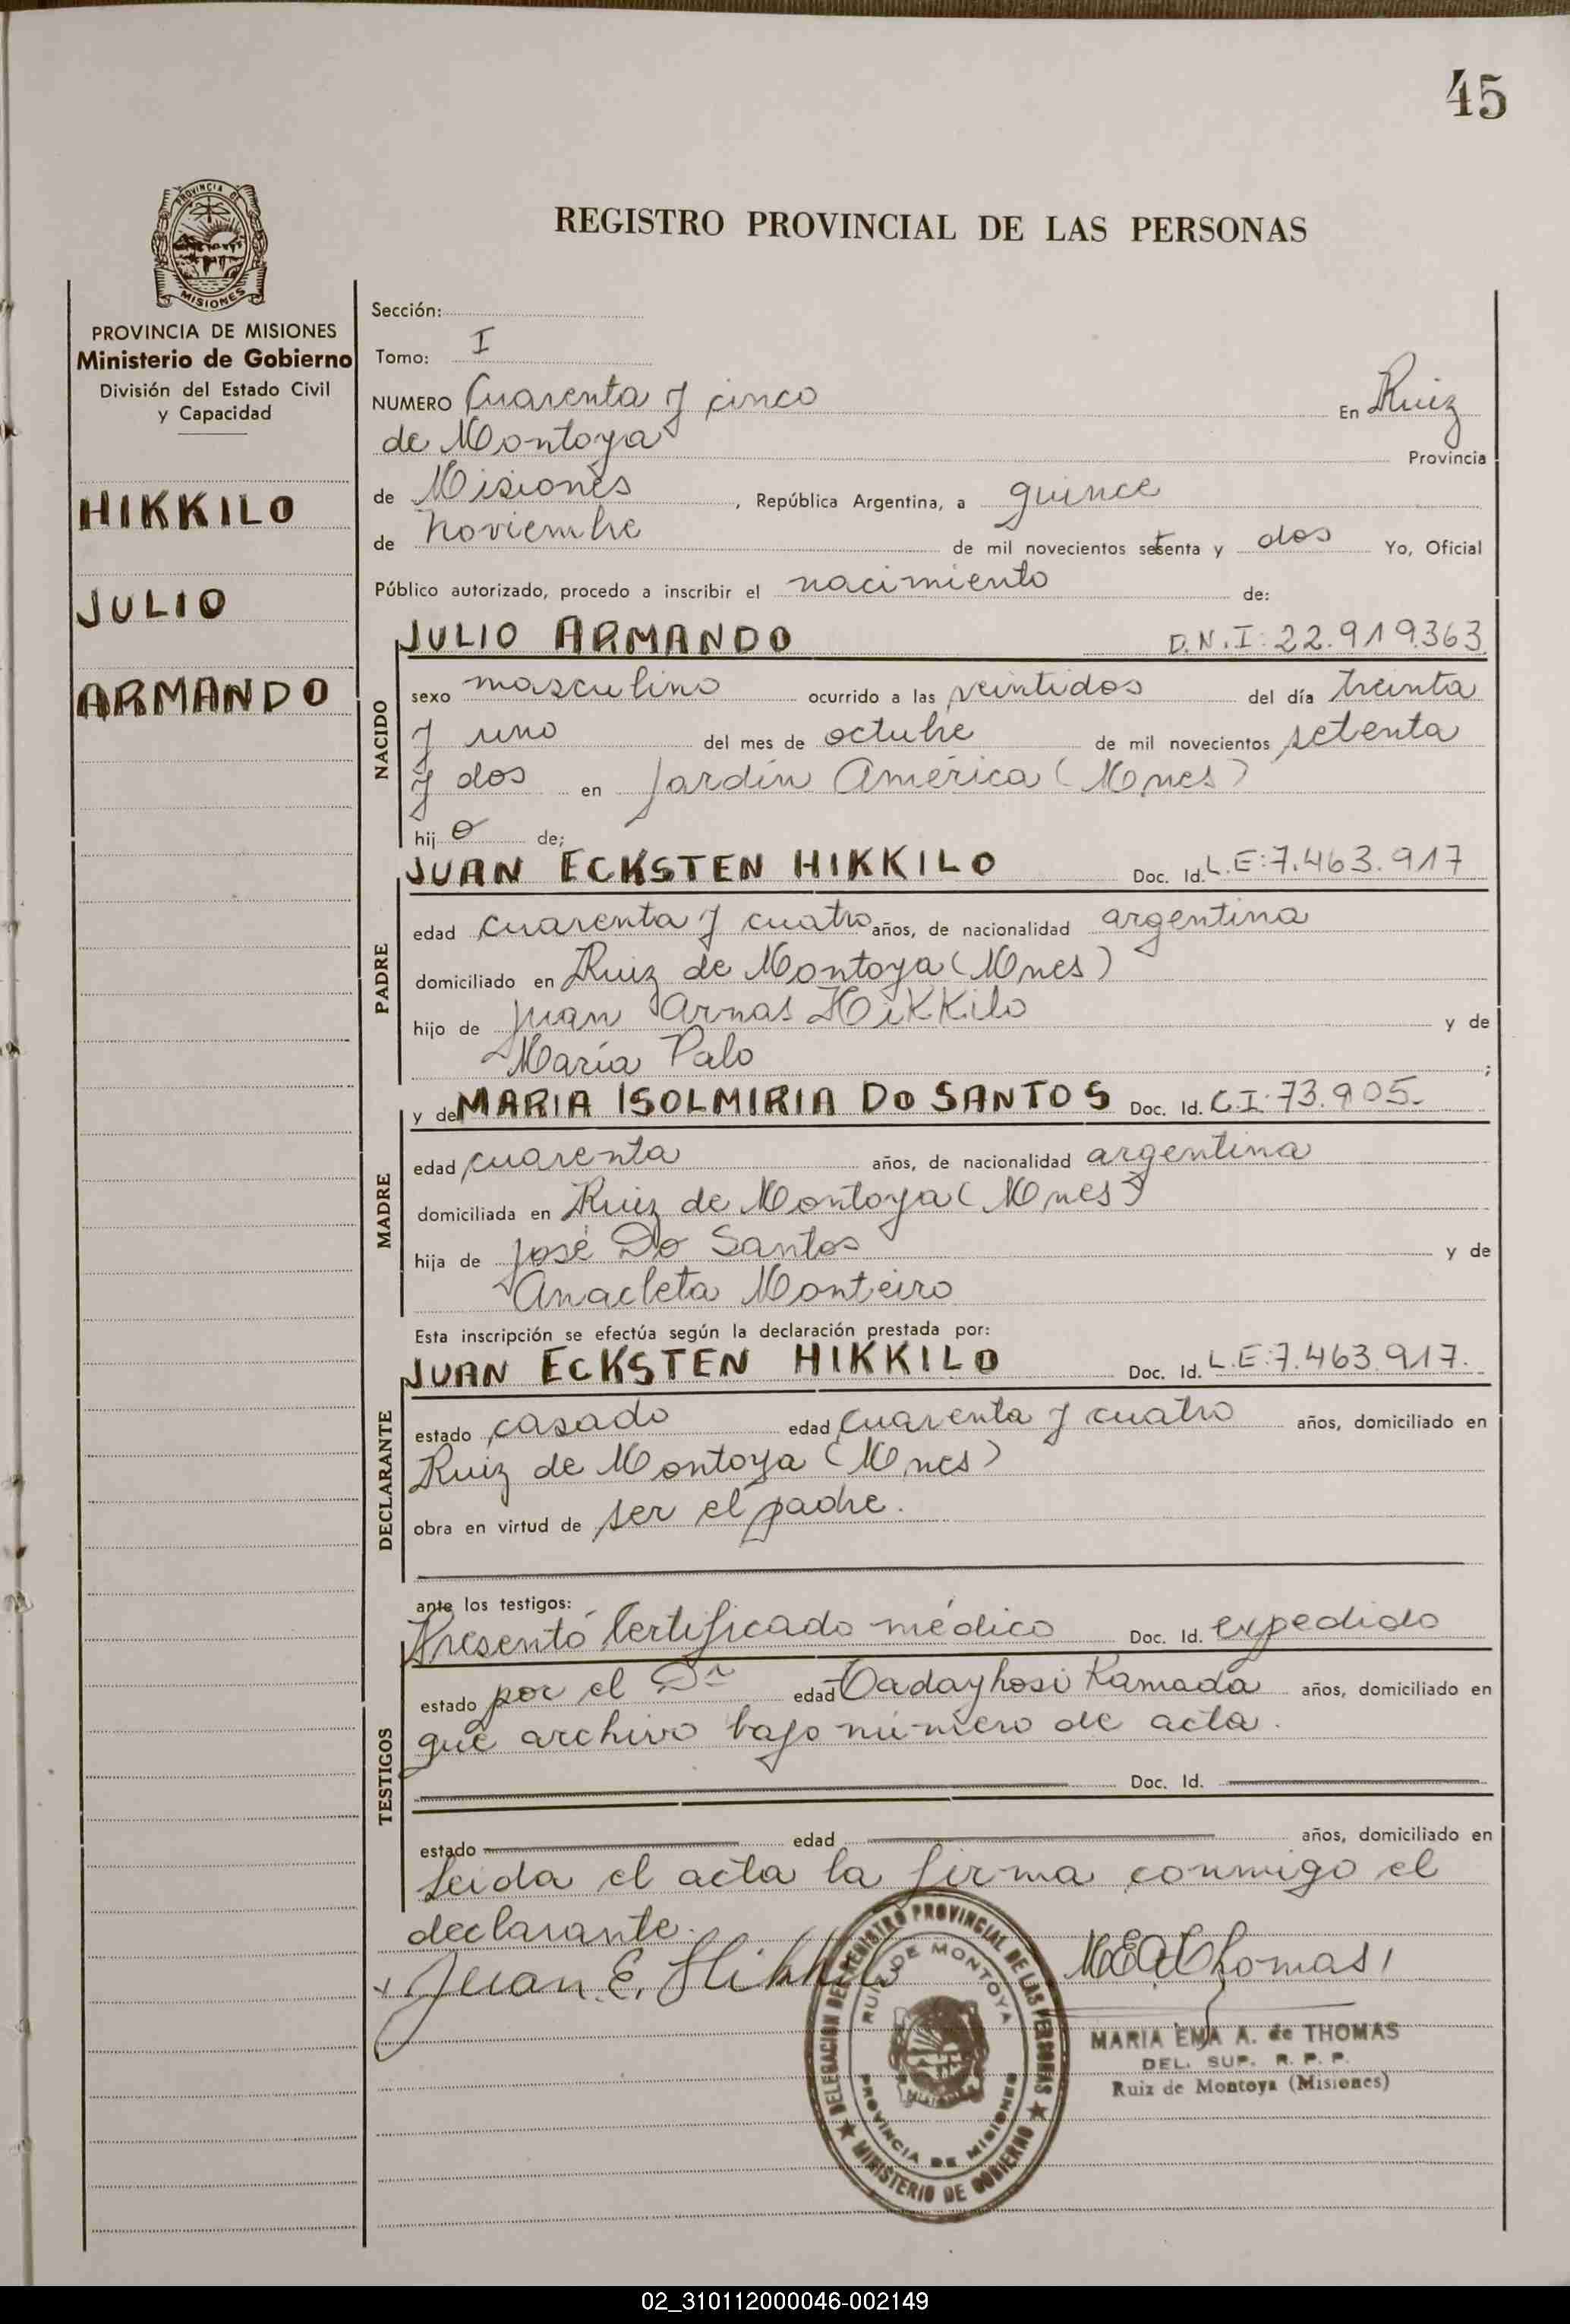 45
PROVINCIA DE
MISIONES
PROVINCIA DE MISIONES
Ministerio de Gobierno
División del Estado Civil
y Capacidad
HIKKILO
JULIO
ARMANDO
REGISTRO PROVINCIAL DE LAS PERSONAS
Sección:
Tomo: I
NUMERO Cuarenta y cinco En Ruiz
de Montoya Provincia
de Misiones, República Argentina, a quince
de noviembre de mil novecientos setenta y dos Yo, Oficial
Público autorizado, procedo a inscribir el nacimiento de:
NACIDO
JULIO ARMANDO D.N.I: 22.919.363
sexo masculino ocurrido a las veintidos del día treinta
y uno del mes de octubre de mil novecientos setenta
y dos en Jardín América (Mnes)
hijo de;
PADRE
JUAN ECKSTEN HIKKILO Doc. Id. L.E:7.463.917
edad cuarenta y cuatro años, de nacionalidad argentina
domiciliado en Ruiz de Montoya (Mnes)
hijo de Juan Arnas Hikkilo y de
María Palo ;
MADRE
y de MARIA ISOLMIRIA DO SANTOS Doc. Id. C.I: 73.905.
edad cuarenta años, de nacionalidad argentina
domiciliada en Ruiz de Montoya (Mnes)
hija de José Do Santos y de
Anacleta Monteiro
Esta inscripción se efectúa según la declaración prestada por:
DECLARANTE
JUAN ECKSTEN HIKKILO Doc. Id. L.E:7.463.917.
estado casado edad cuarenta y cuatro años, domiciliado en
Ruiz de Montoya (Mnes)
obra en virtud de ser el padre.
ante los testigos:
TESTIGOS
Presentó Certificado médico Doc. Id. expedido
estado por el Dr edad Tadayhosi Kamada años, domiciliado en
que archivo bajo número de acta.
Doc. Id.
estado edad años, domiciliado en
Leida el acta la firma conmigo el
declarante.
Juan E. Hikkilo
M E A Thomas
DELEGACION DEL REGISTRO PROVINCIAL DE LAS PERSONAS
RUIZ DE MONTOYA
PROVINCIA DE MISIONES
MINISTERIO DE GOBIERNO
MARIA EMA A. de THOMAS
DEL. SUP. R. P. P.
Ruiz de Montoya (Misiones)
02_310112000046-002149